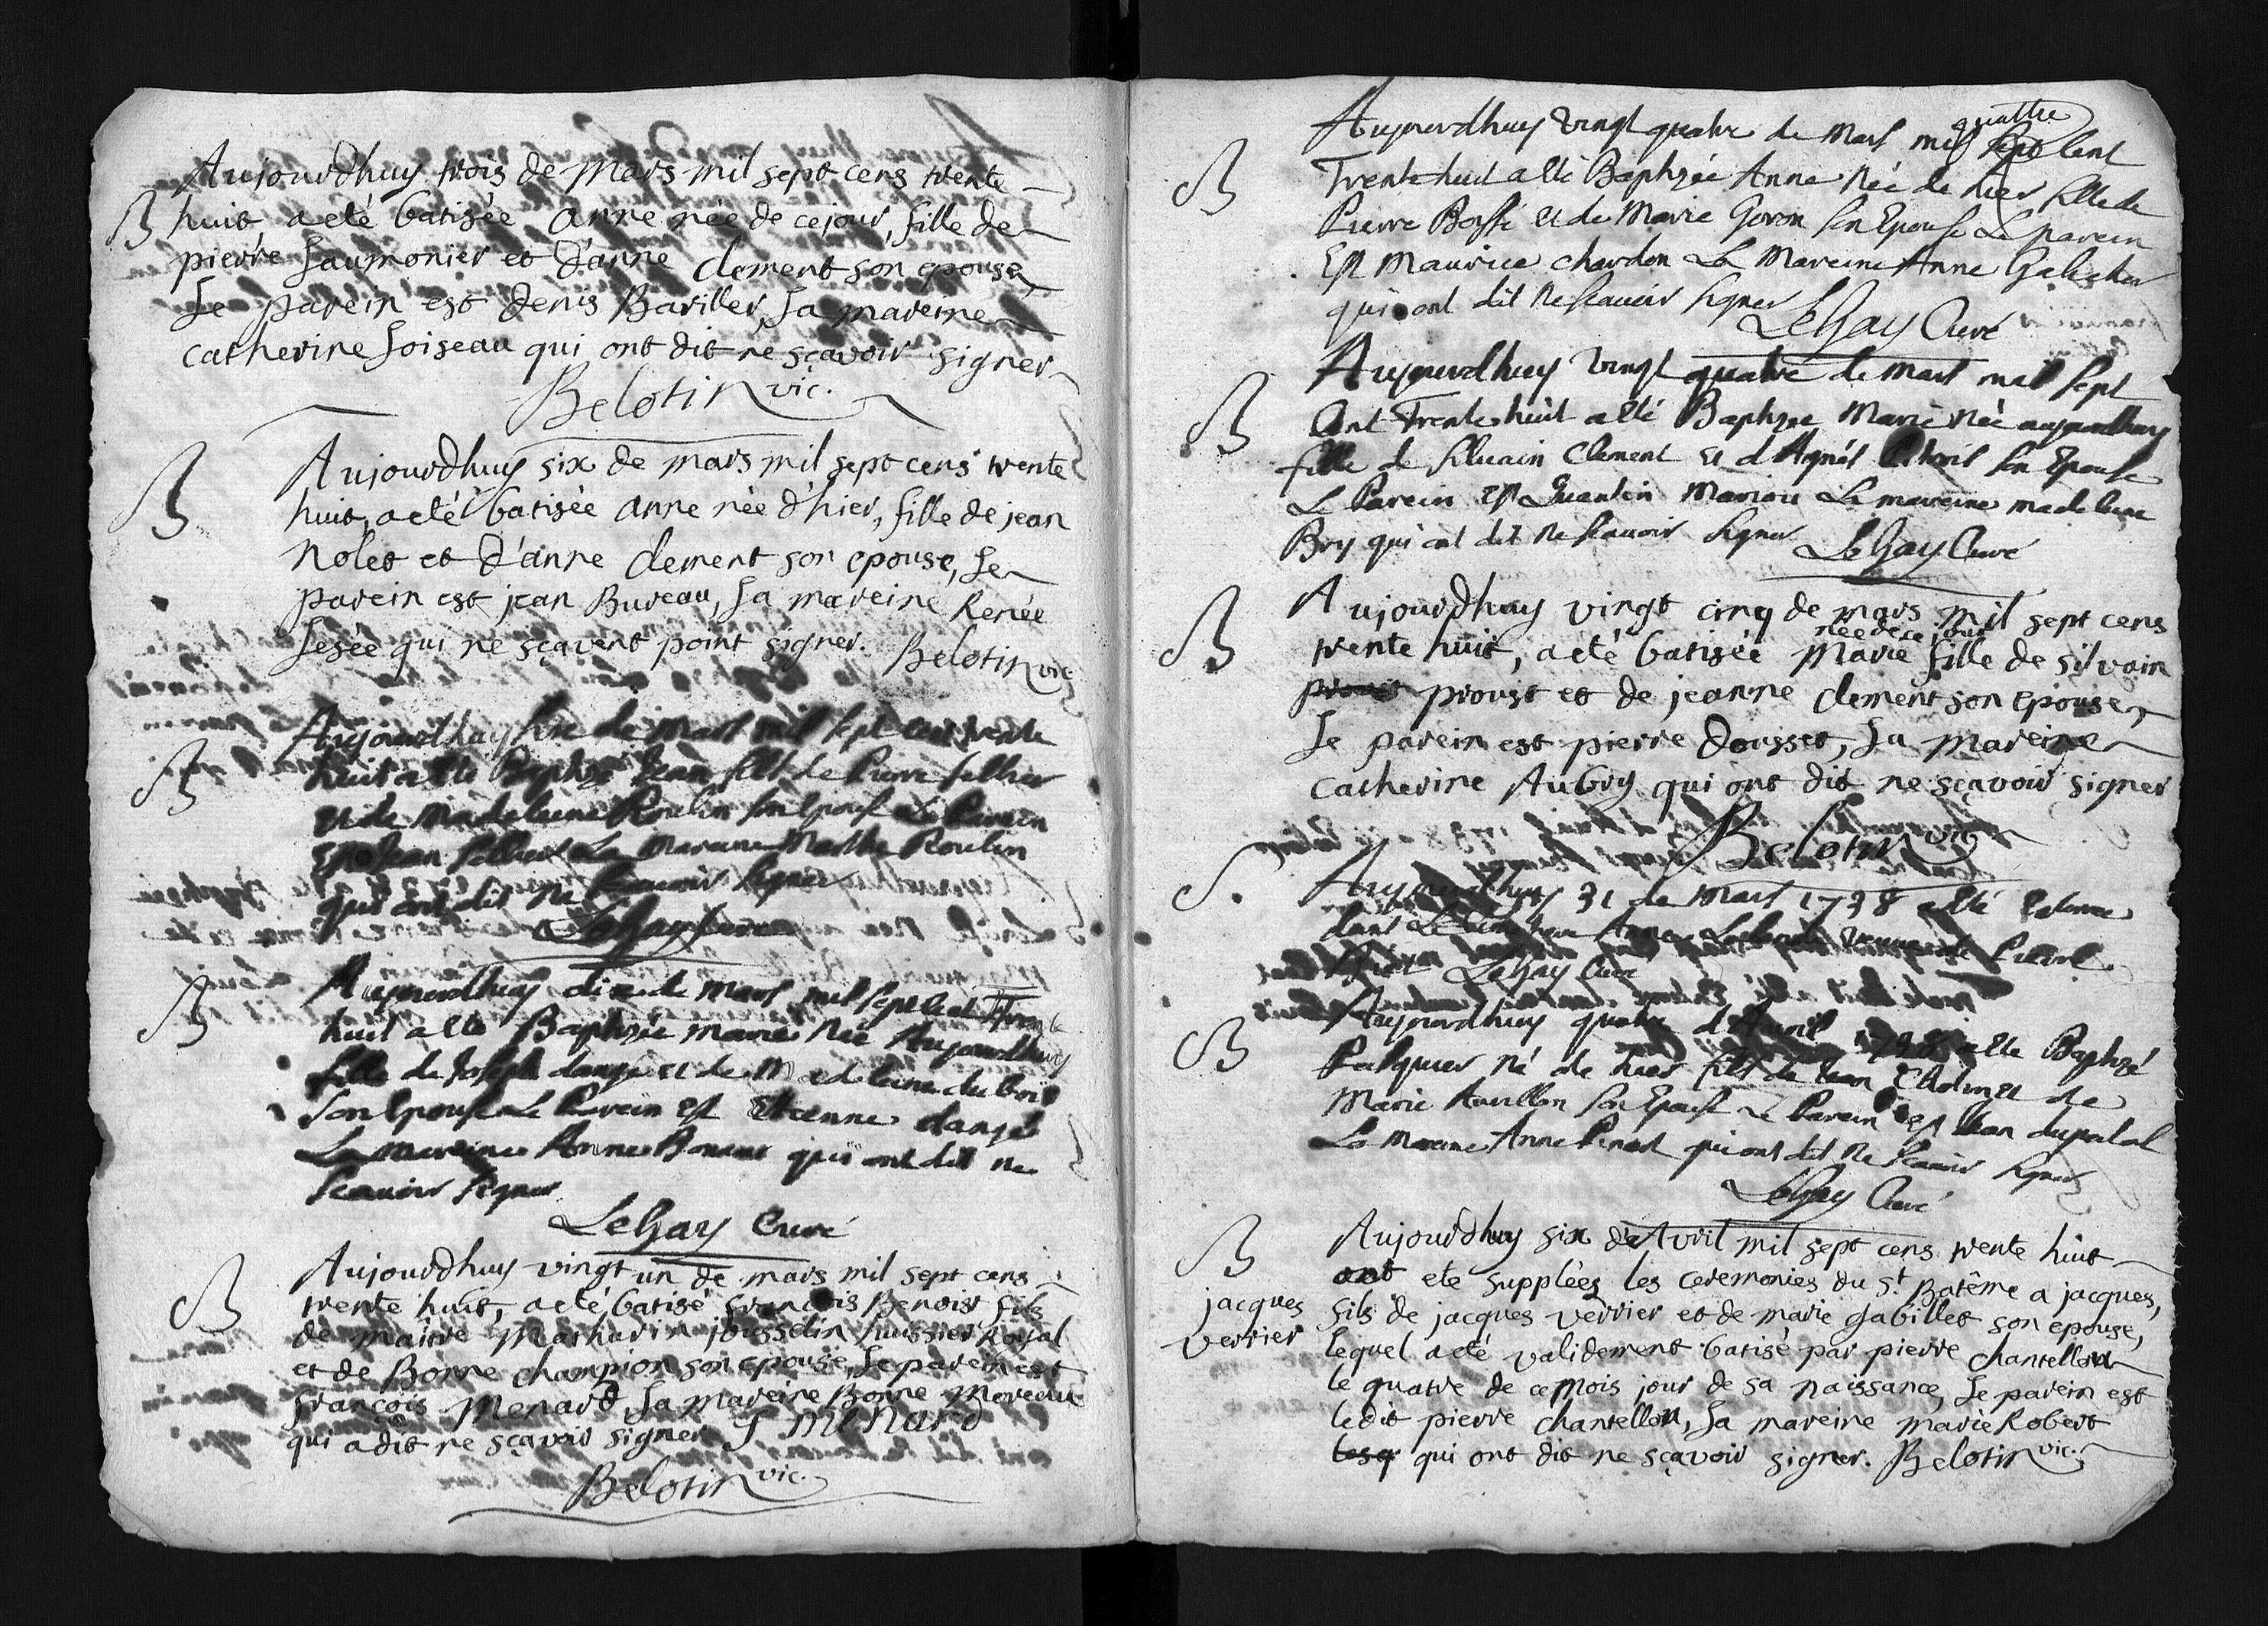 Aujourdhuy trois de mars mil sept cens trente
B huit, a eté batisée anne née de ce jour, fille de
pierre Saumonier et d'anne clement son epouse,
Le parein est denis Bariller, La mareine
catherine Loiseau qui ont dit ne sçavoir signer
Belotin vic.
B Aujourdhuy six de mars mil sept cens trente
huit, a eté batisée anne née d'hier, fille de jean
Nolet et d'anne clement son epouse, Le
parein est jean Bureau, La mareine Renée
Lesée qui ne sçavent point signer. Belotin vic
B Aujourdhuy de mars mil sept cent trente
huit a esté Baptizé Jean fils de Pierre sellier
et de Madeleine Roulin son Epouse Le Parein
Est Jean sellier La Mareine Marthe Roulin
qui ont dit ne scauoir signer
LeGay Curé
B Aujourdhuy dix de mars mil sept cent Trente
huit a esté Baptizée marie Née Aujourdhuy
fille de Joseph dangé et de Madeleine du bois
son Epouse Le Parein est Etienne dangé
La mareine Anne qui ont dit ne
scauoir signer
LeGay Curé
B Aujourdhuy vingt un de mars mil sept cens
trente huit, a eté batisé françois Benoist fils
de maitre Mathurin jousselin huissier Royal
et de Bonne champion son epouse, Le parein est
françois Menard, La mareine Bonne Moreau
qui a dit ne sçavoir signer F menard
Belotin vic.
quattre
Aujourdhuy vingt quatre de Mars mil sept Cent
B Trente huit a esté Baptizée Anne Née de hier fille de
Pierre Bossé et de Marie Goron son Epouse Le parein
Est Maurice chardon La Mareine Anne
qui ont dit ne scauoir signer
LeGay Curé
Aujourdhuy vingt quatre de mars mil sept
B Cent Trente huit a esté Baptizée Marie Née aujourdhuy
fille de siluain Clement et d'Agnés son Epouse
Le Parein est Quantin Mariou La mareine madeleine
Bry qui ont dit ne scauoir signer LeGay Curé
B Aujourdhuy vingt cinq de mars mil sept cens
née de ce jour
trente huit, a eté batisée Marie fille de silvain
proust et de jeanne clement son epouse,
Le parein est pierre dousset, La mareine
catherine Aubry qui ont dit ne sçavoir signer
Belotin vic
S. Aujourdhuy 31 de Mars 1738 a esté Enterrée
dans Le Cimetiere Anne veuve de Pierre
LeGay Curé
Aujourdhuy quatre d'Auril 1738 a esté Baptizé
B Jacques né de hier fils de Jean et de
Marie Aurillon son Epouse Le Parein est Jean
La Mareine Anne Penot qui ont dit ne scauoir signer
LeGay Curé
B Aujourdhuy six d'Avril mil sept cens trente huit
ont ete supplées les ceremonies du St. Batême a jacques,
jacques fils de jacques verrier et de marie gabillet son epouse,
verrier lequel a eté validement batisé par pierre chantellou
le quatre de ce mois jour de sa naissance, Le parein est
ledit pierre chantellou, La mareine marie Robert
lesq qui ont dit ne sçavoir signer. Belotin vic.